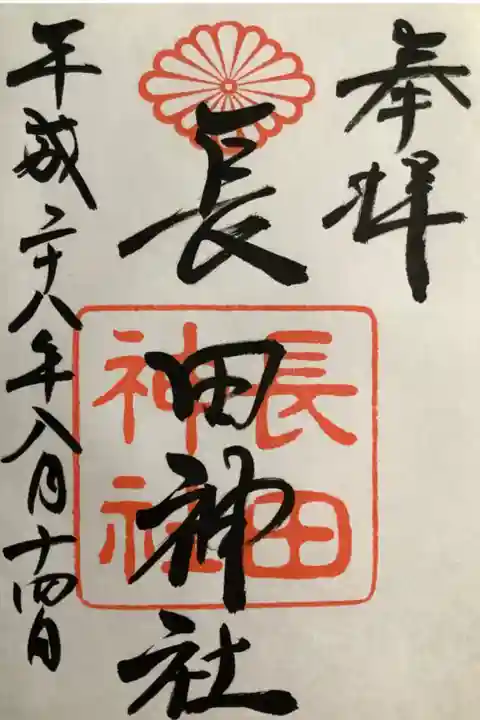 奉拝
長田神社
長田神社
平成二十八年八月十四日